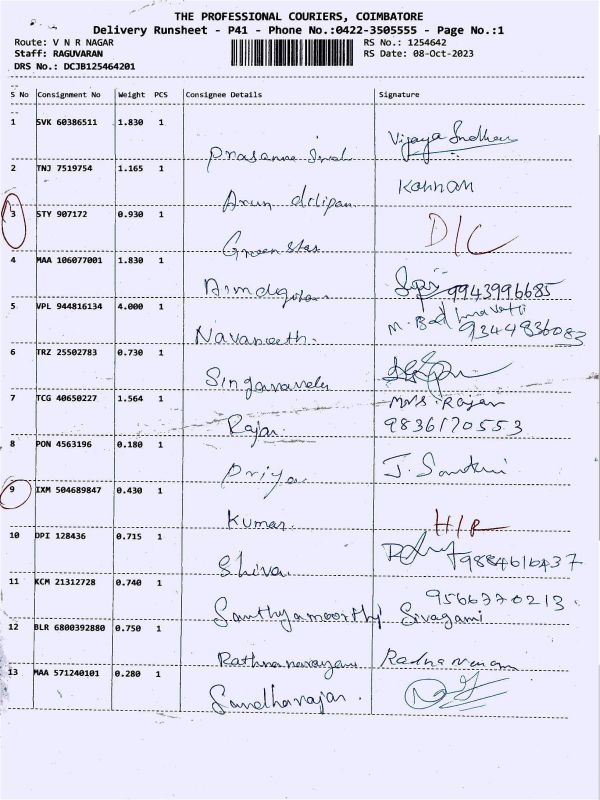 THE PROFESSIONAL COURIERS, COIMBATORE
Delivery Runsheet - P41 - Phone No.:0422-3505555 - Page No.:1
Route: V N R NAGAR RS No.: 1254642
Staff: RAGUVARAN RS Date: 08-Oct-2023
DRS No.: DCJB125464201
S No Consignment No Weight PCS Consignee Details Signature
1 SVK 60386511 1.830 1
Prasanna Vijaya
2 TNJ 7519754 1.165 1 Kannan
Arun dilipan
3 STY 907172 0.930 1 D/C
Green star
4 MAA 106077001 1.830 1
9943996685
5 VPL 944816134 4.000 1 M.
Navaneeth. 9344836083
6 TRZ 25502783 0.730 1
Singaravelu
7 TCG 40650227 1.564 1 Mrs. Rajan
Rajan 9836170553
8 PON 4563196 0.180 1
Priya J.
9 IXM 504689847 0.430 1
Kumar
10 DPI 128436 0.715 1 9884616437
Shiva
11 KCM 21312728 0.740 1 9566770213
Santhyamoorthy Sivagami
12 BLR 6800392880 0.750 1
13 MAA 571240101 0.280 1